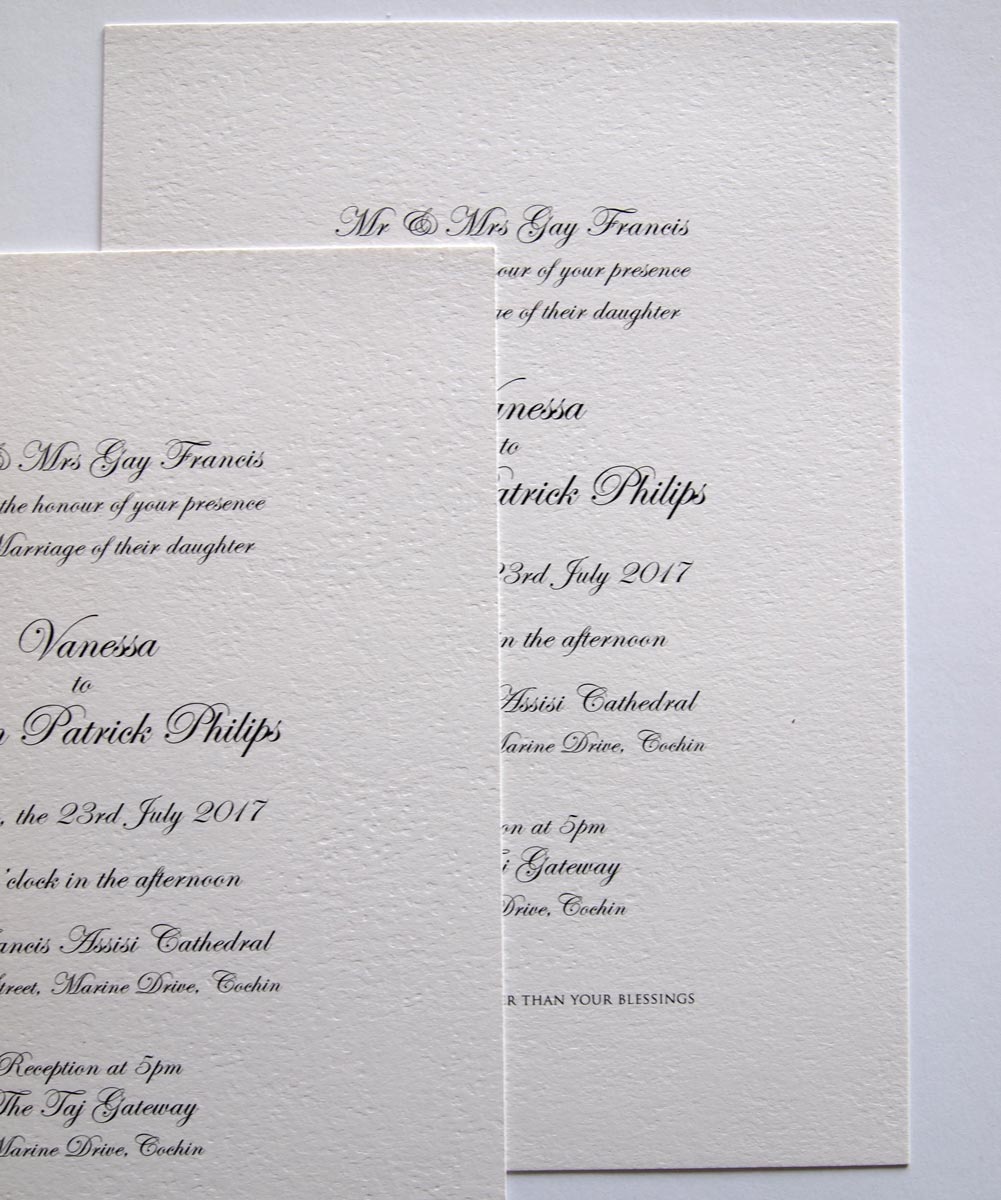 Mr & Mrs Gay Francis
of your presence
of their daughter
to
Philips
23rd July 2017
in the afternoon
Assisi Cathedral
Marine Drive, Cochin
at 5pm
Gateway
Drive, Cochin
THAN YOUR BLESSINGS
& Mrs Gay Francis
the honour of your presence
Marriage of their daughter
Vanessa
to
Patrick Philips
, the 23rd July 2017
'clock in the afternoon
Assisi Cathedral
Marine Drive, Cochin
Reception at 5pm
The Taj Gateway
Marine Drive, Cochin